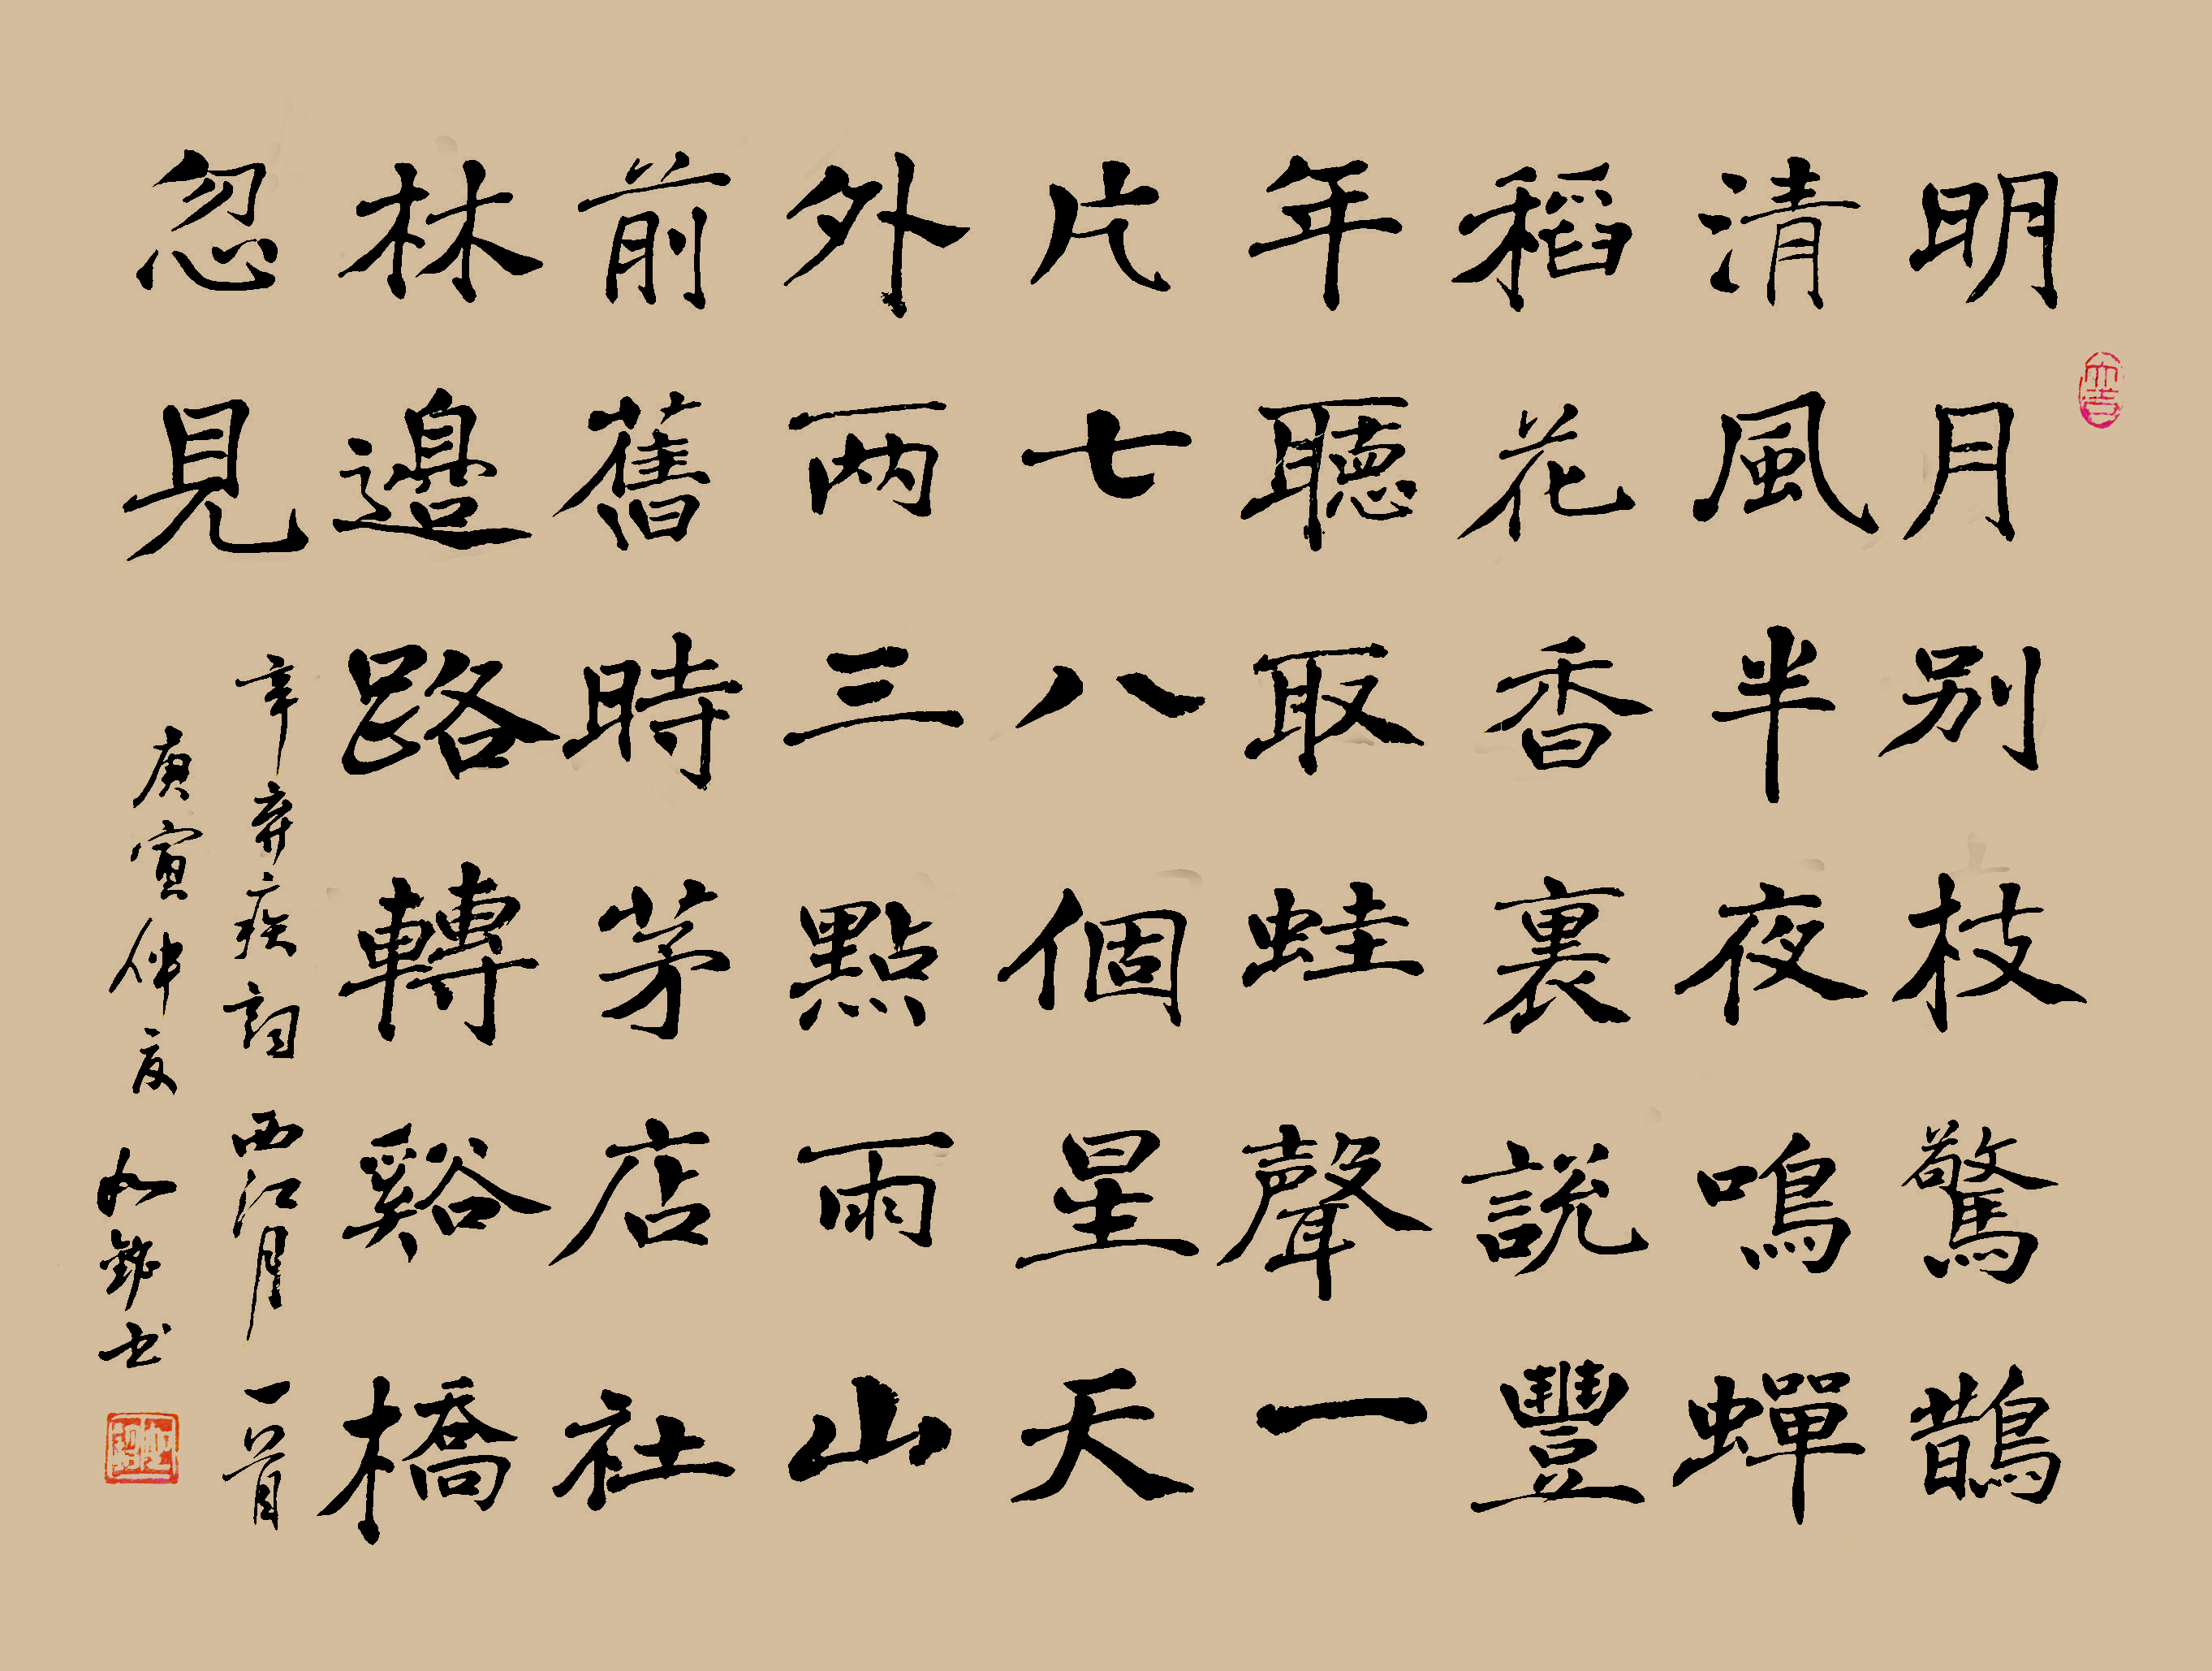 明月别枝驚鵲
清風半夜鳴蟬
稻花香裏説豐
年聽取蛙聲一
片七八個星天
外兩三點雨山
前舊時茅店社
林邊路轉谿橋
忽見
辛弃疾詞西江月一首
庚寅仲夏如銘书